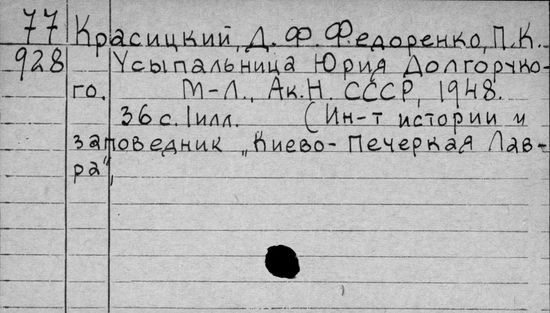 77 Красицкий, Д. Ф. Федоренко, П.К.
928 Усыпальница Юрия Долгоруко-
го. М-Л., Ак.Н. СССР, 1948.
36 с. 1 илл. (Ин-т истории и
заповедник „Киево-Печеркая Лав-
ра",